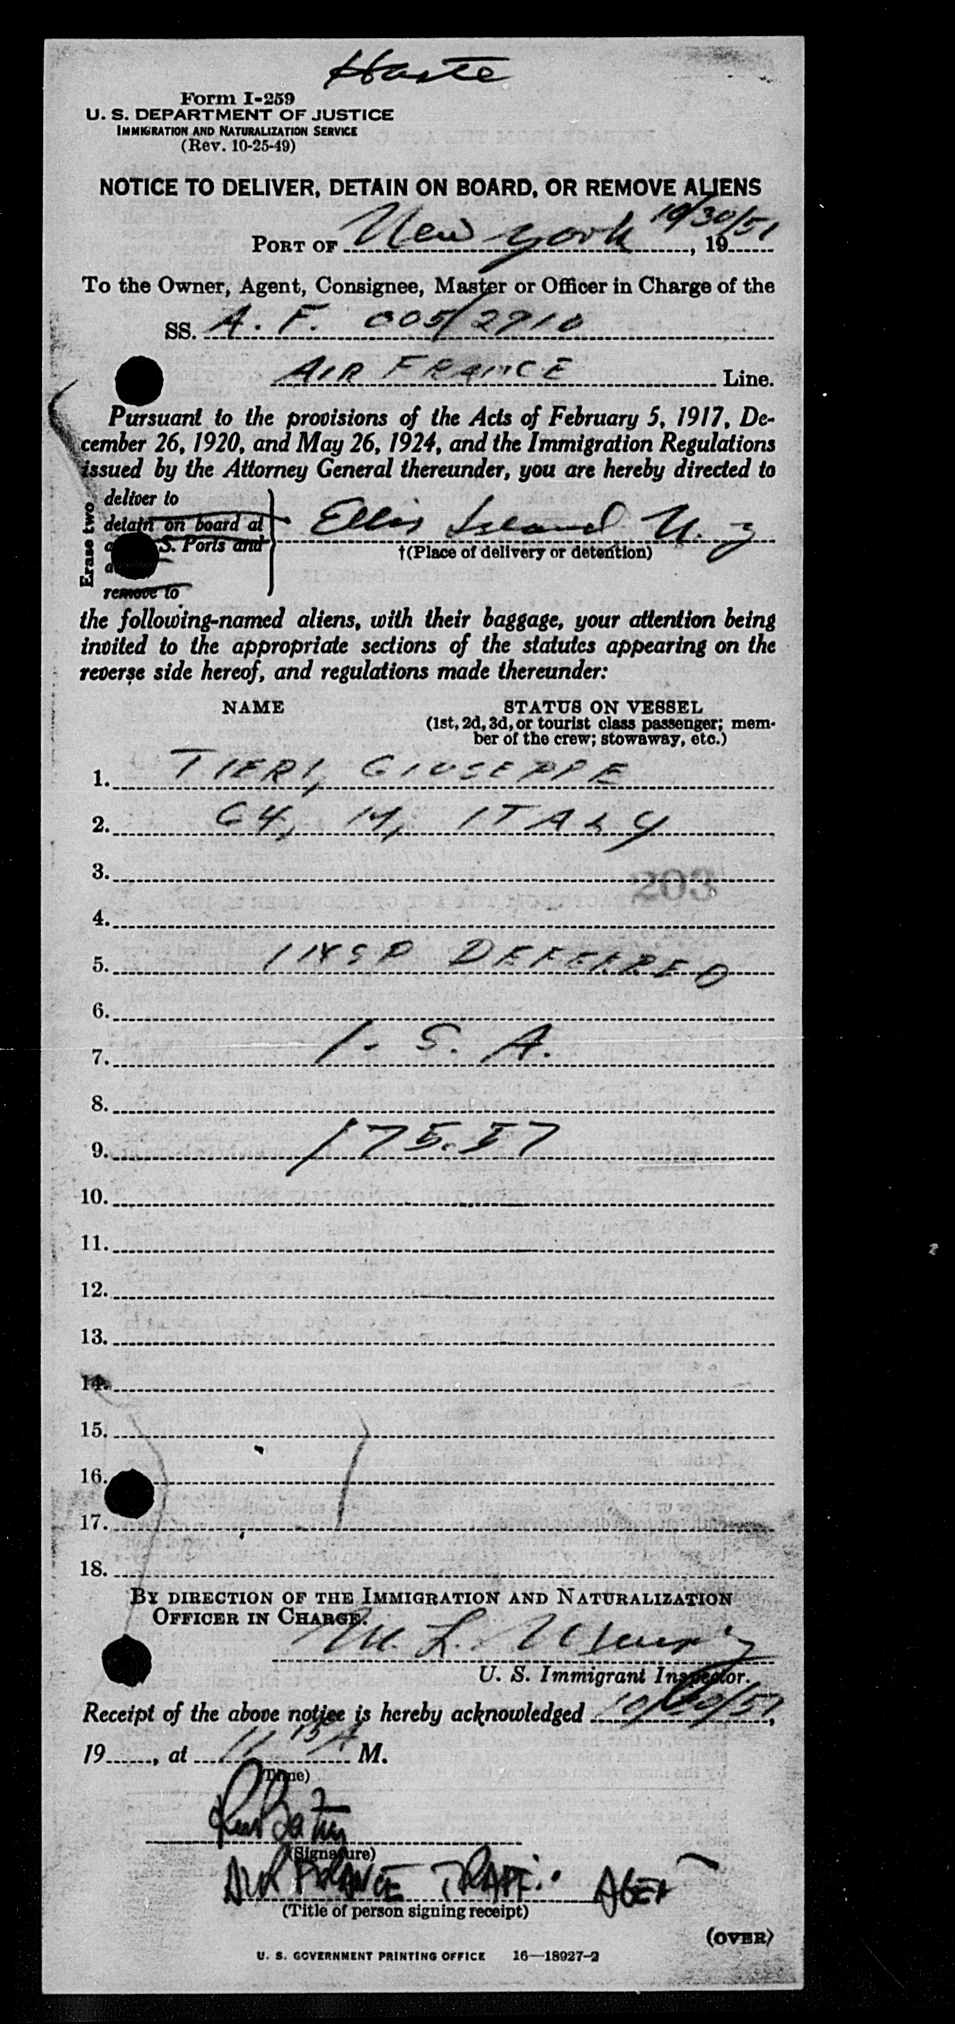 Haste
Form I-259
U. S. DEPARTMENT OF JUSTICE
IMMIGRATION AND NATURALIZATION SERVICE
(Rev. 10-25-49)
NOTICE TO DELIVER, DETAIN ON BOARD, OR REMOVE ALIENS
PORT OF New York 10/30/51, 19
To the Owner, Agent, Consignee, Master or Officer in Charge of the
SS. A. F. 005/2910
AIR FRANCE Line.
Pursuant to the provisions of the Acts of February 5, 1917, De-
cember 26, 1920, and May 26, 1924, and the Immigration Regulations
issued by the Attorney General thereunder, you are hereby directed to
Erase two
deliver to
detain on board at
S. Ports and
remove to
Ellis Island N. Y
†(Place of delivery or detention)
the following-named aliens, with their baggage, your attention being
invited to the appropriate sections of the statutes appearing on the
reverse side hereof, and regulations made thereunder:
NAME STATUS ON VESSEL
(1st, 2d, 3d, or tourist class passenger; mem-
ber of the crew; stowaway, etc.)
1. TIERI, GIUSEPPE
2. 64, M, ITALY
3.
203
4.
5. INSP DEFERRED
6.
7. I. S. A.
8.
9. 175.57
10.
11.
12.
13.
14.
15.
16.
17.
18.
BY DIRECTION OF THE IMMIGRATION AND NATURALIZATION
OFFICER IN CHARGE.
M. L.
U. S. Immigrant Inspector.
Receipt of the above notice is hereby acknowledged 10/30/51,
19, at 11 15 A M.
(Time)
(Signature)
AIR FRANCE TRAFF. AGEN
(Title of person signing receipt)
(OVER)
U. S. GOVERNMENT PRINTING OFFICE 16—18927-2